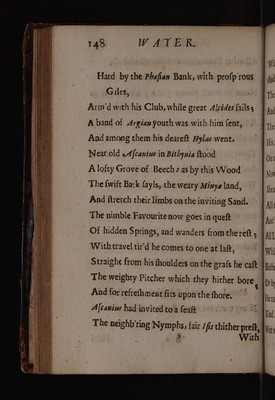 148 WATER.
Hard by the Phaſian Bank, with proſp'rous
Gales,
Arm'd with his Club, while great Alcides ſails,
A band of Argian youth was with him ſent,
And among them his deareſt Hylas went.
Near old Aſcanius in Bithynia ſtood
A lofty Grove of Beech: as by this Wood
The ſwift Bark ſayls, the weary Minyæ land,
And ſtretch their limbs on the inviting Sand.
The nimble Favourite now goes in queſt
Of hidden Springs, and wanders from the reſt;
With travel tir'd he comes to one at laſt,
Straight from his ſhoulders on the graſs he caſt
The weighty Pitcher which they hither bore,
And for refreſhment ſits upon the ſhore.
Aſcanius had invited to a feaſt
The neighb'ring Nymphs, fair Iſis thither preſt,
With